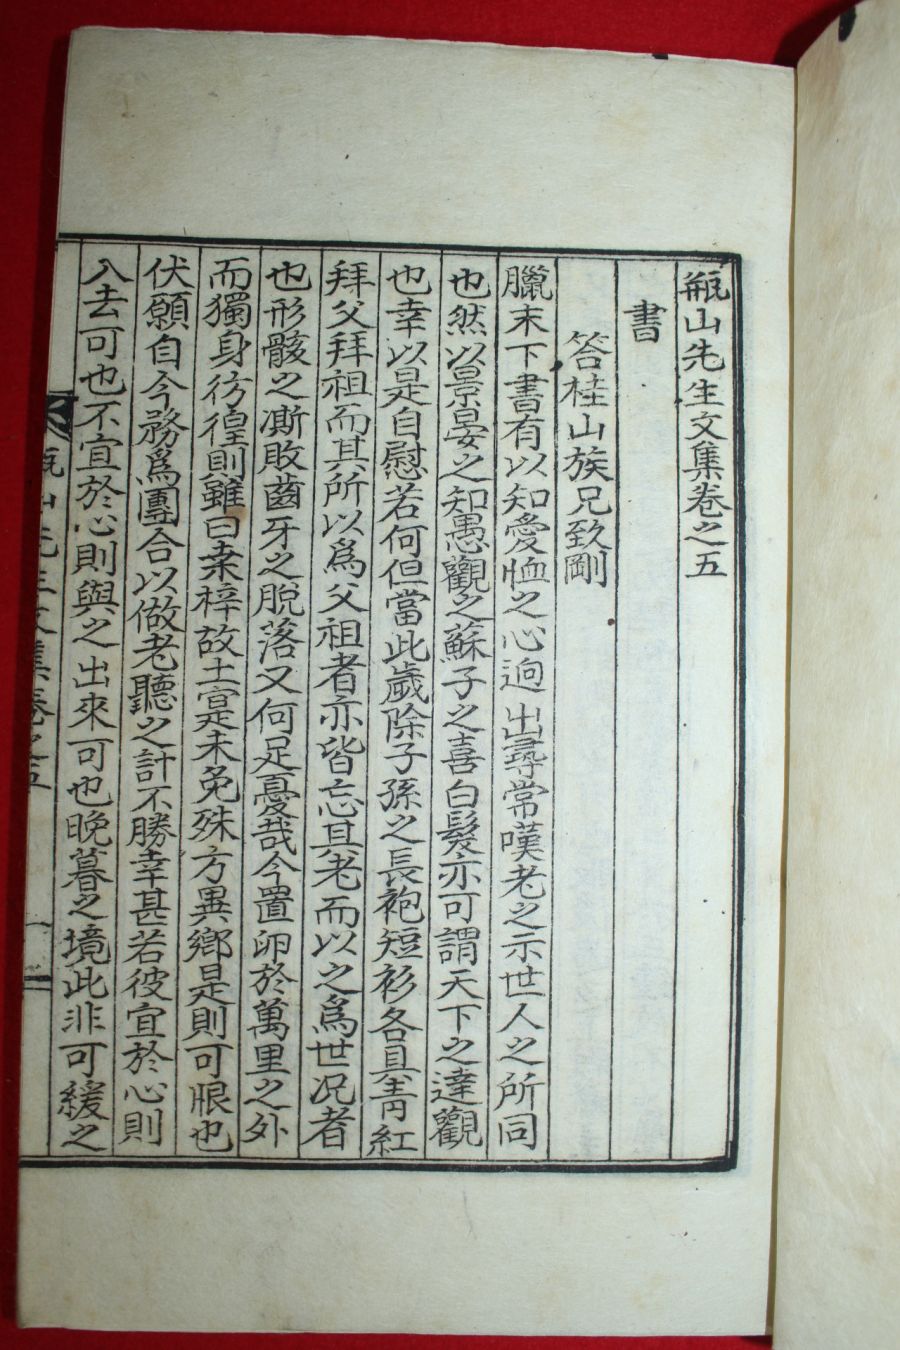 瓶山先生文集卷之五
書
答桂山族兄致剛
臘末下書有以知愛恤之心逈出尋常嘆老之示世人之所同
也然以景晏之知愚觀之蘇子之喜白髮亦可謂天下之達觀
也幸以是自慰若何但當此歲除子孫之長袍短衫各具靑紅
拜父拜祖而其所以爲父祖者亦皆忘且老而以之爲世况者
也形骸之澌敗齒牙之脫落又何足憂哉今置卵於萬里之外
而獨身彷徨則雖曰桒梓故土寔未免殊方異鄕是則可恨也
伏願自今務爲團合以做老聽之計不勝幸甚若彼宜於心則
入去可也不宜於心則與之出來可也晩暮之境此非可緩之
瓶山先生文集卷之五 一